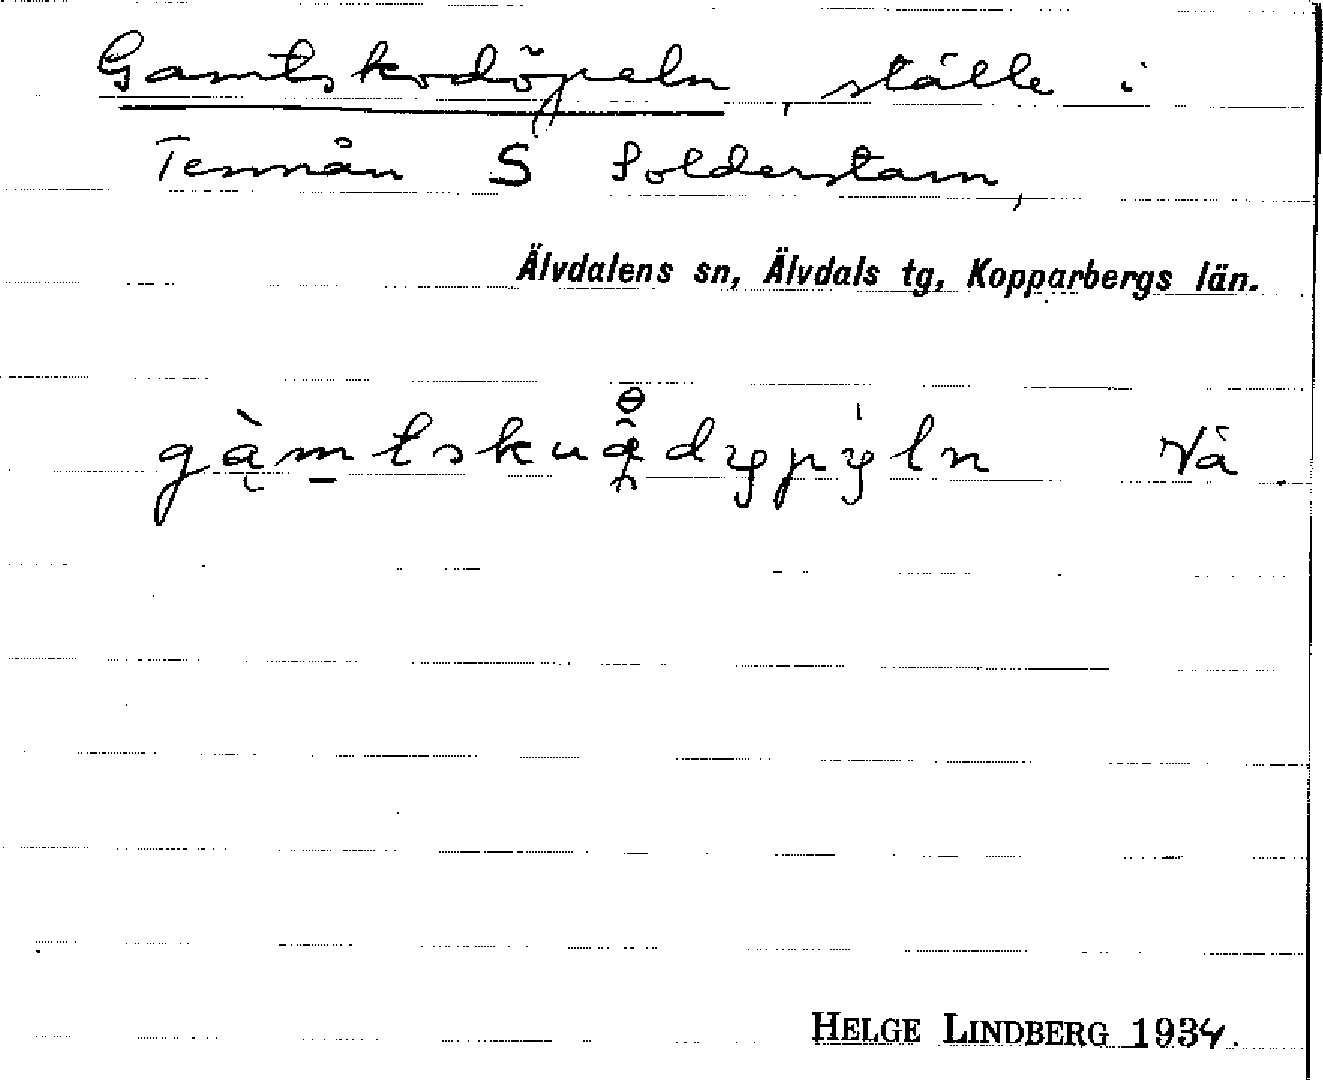 Gamtskodöpeln, ställe i
Tennån S Solderstam,
Älvdalens sn, Älvdals tg, Kopparbergs län.
Vå.
HELGE LINDBERG 1934.